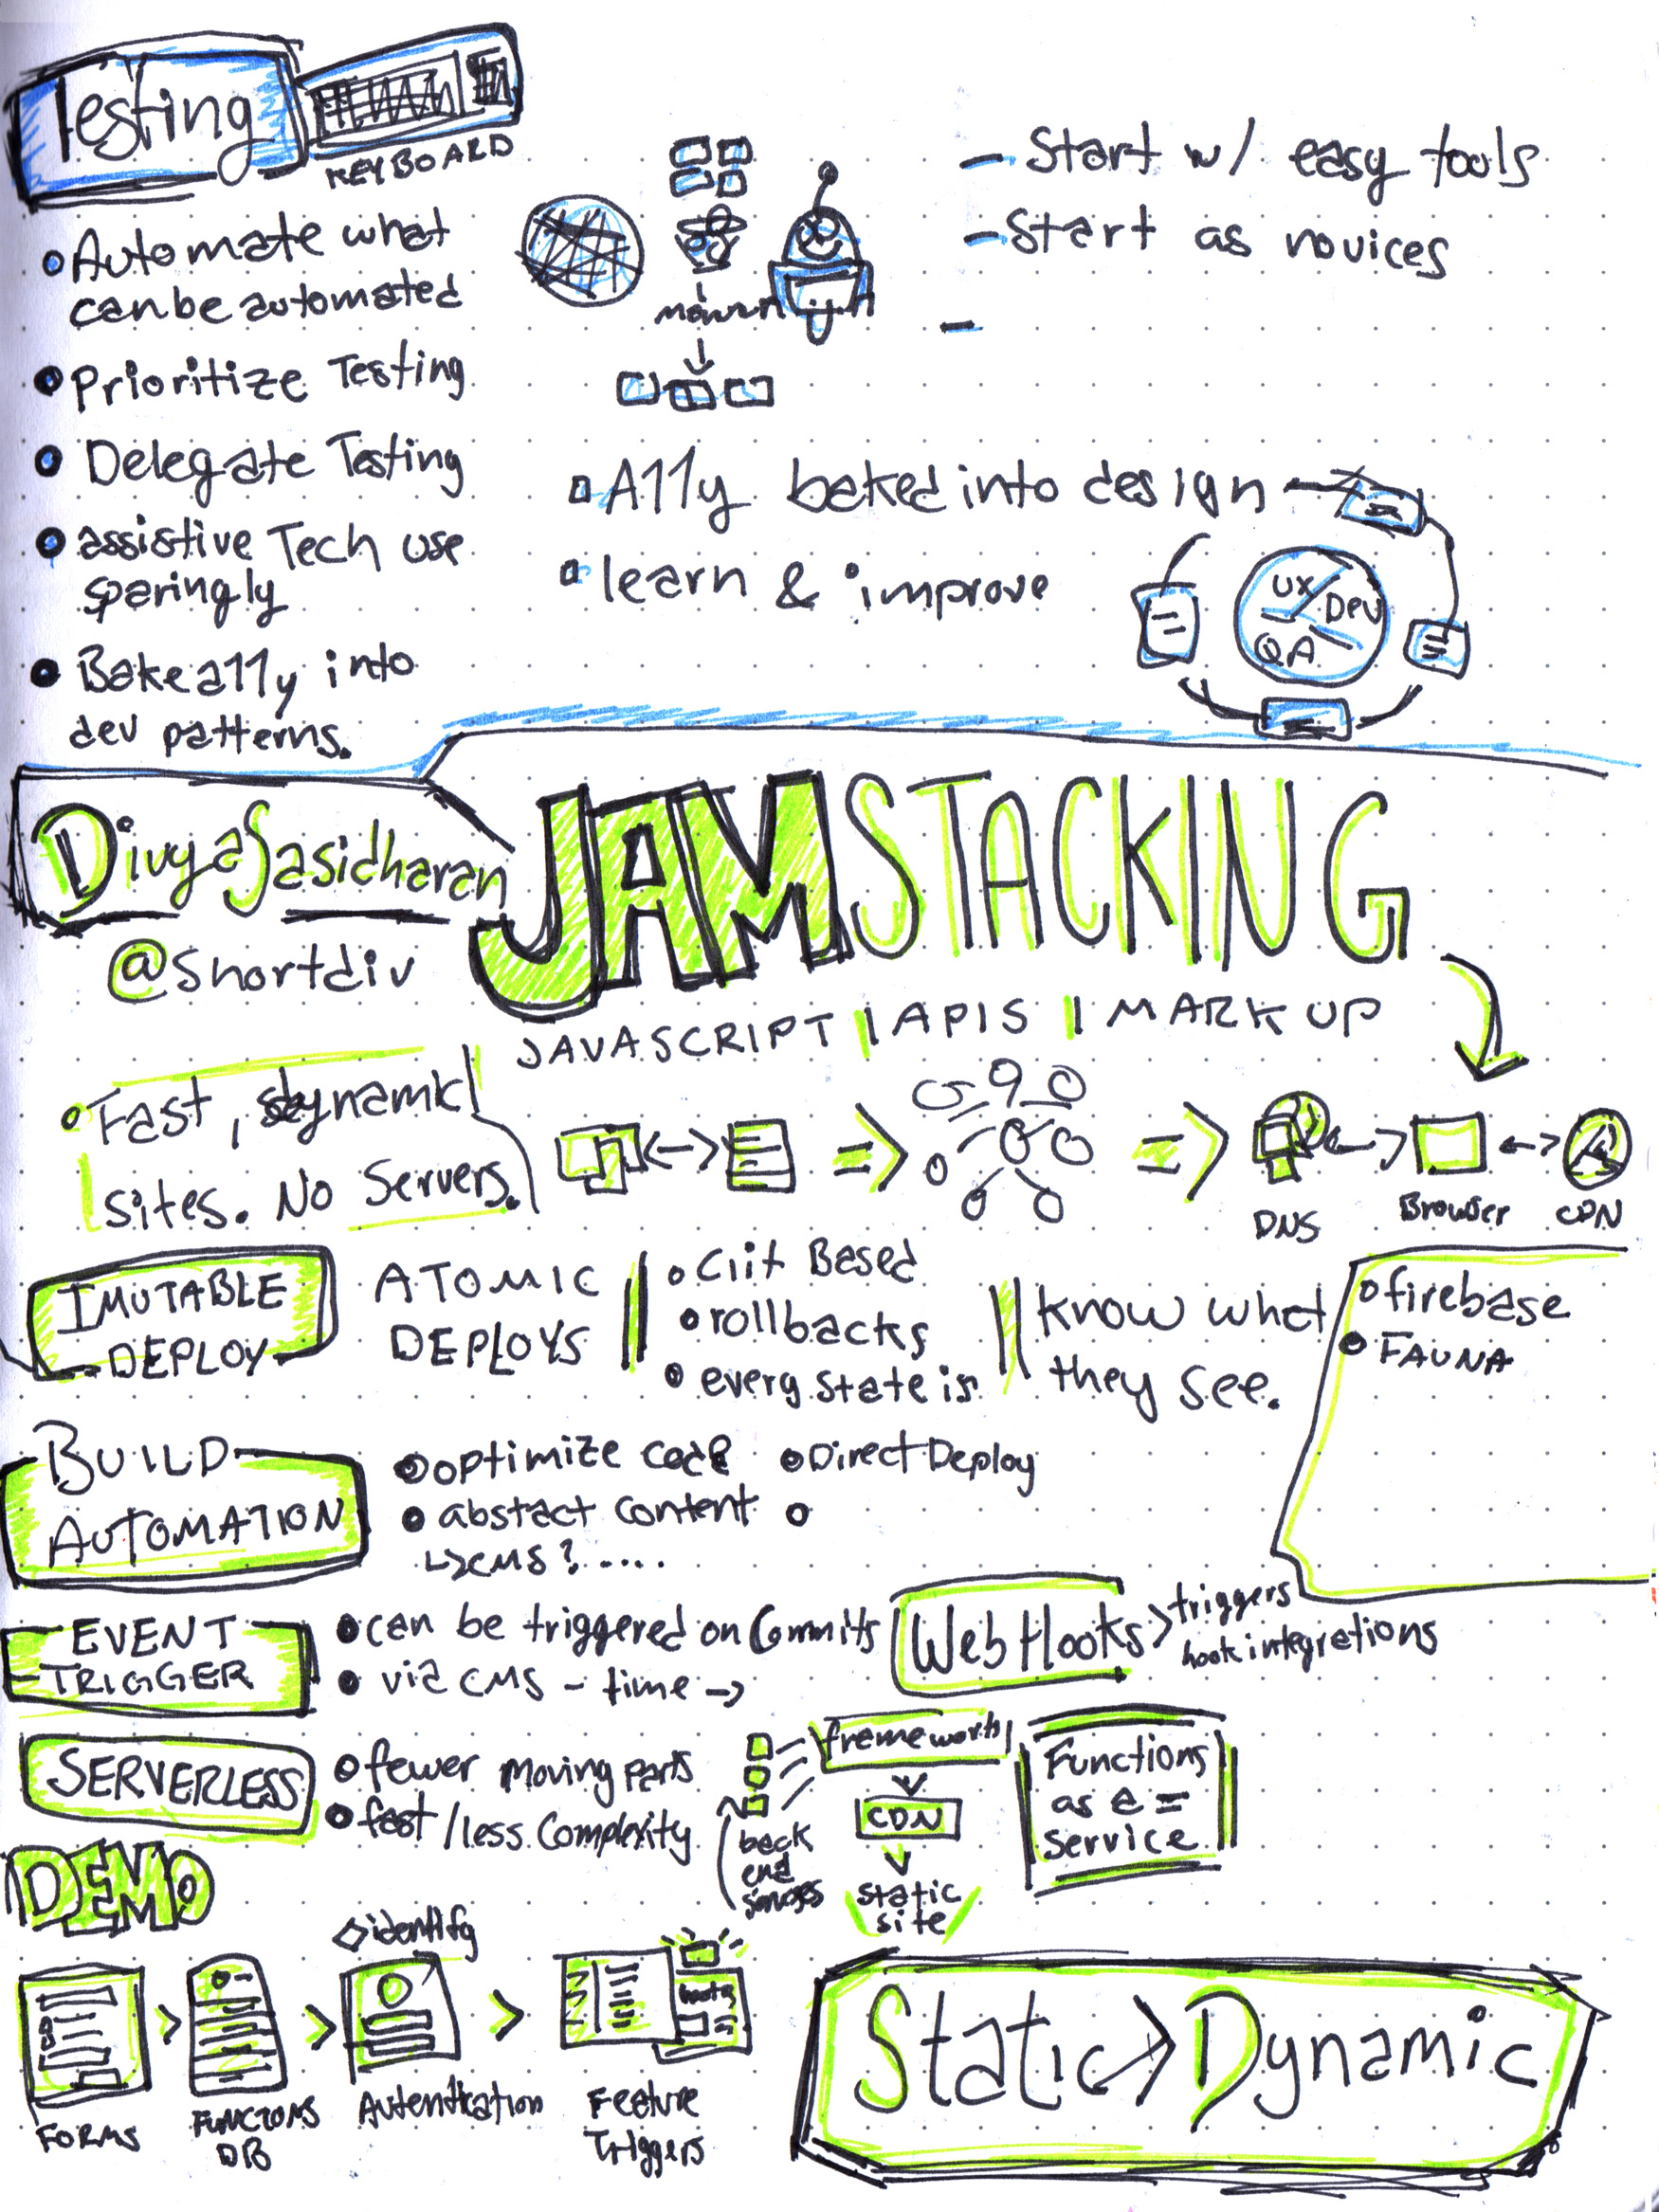 Testing
KEYBOARD
Automate what
can be automated
Prioritize Testing
Delegate Testing
assistive Tech use
sparingly
Bake a11y into
dev patterns.
- Start w/ easy tools
- Start as novices
-
A11y baked into design
learn & improve
UX
Dev
QA
Divya Sasidharan
@Shortdiv
JAMSTACKING
JAVASCRIPT | APIS | MARKUP
Fast, dynamic
sites. No Servers.
DNS
Browser
CDN
IMUTABLE
DEPLOY
ATOMIC
DEPLOYS
Based
rollbacks
every state is
Know what
they see.
firebase
FAUNA
BUILD
AUTOMATION
optimize code
abstract content
CMS? ....
Direct Deploy
EVENT
TRIGGER
can be triggered on Commits
via CMS - time
Web Hooks
triggers
hook integrations
SERVERLESS
fewer moving parts
fast/less Complexity
back
end
framework
CDN
static
site
Functions
as a =
service
DEMO
FORMS
FUNCTIONS
DB
identify
Autentication
hooks
Feature
Triggers
Static > Dynamic